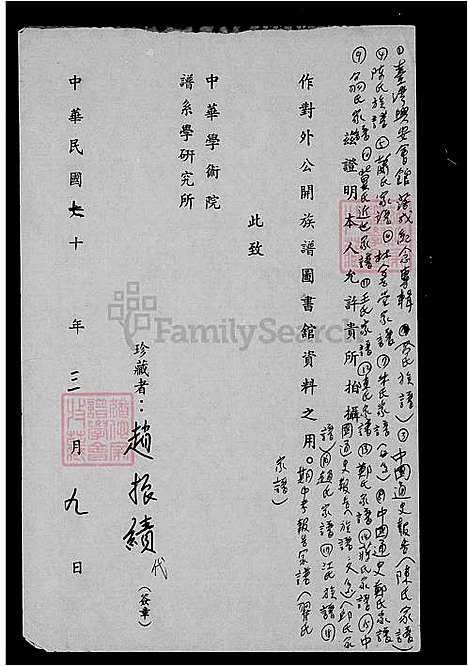 ①臺灣興安會館落成紀念專輯②呂氏族譜)③中國通史報告(陳氏家譜)
④陳氏族譜⑤蕭氏家譜⑥林金堂家譜⑦朱氏家譜⑧中國通史鄭氏家譜
⑨翁氏家譜⑩黃氏近世家譜⑪王氏家譜⑫家譜⑬鄭氏家譜⑭蔣氏家譜⑮中
國通史報告族譜(邱氏家
譜)⑯趙氏家譜⑰江氏族譜⑱
期中考報告宗譜(
家譜)
茲證明本人允許貴所拍攝
作對外公開族譜圖書館資料之用。
此致
中華學術院
譜系學研究所
珍藏者:趙振績代(簽章)
中華民國七十年三月九日
FamilySearch